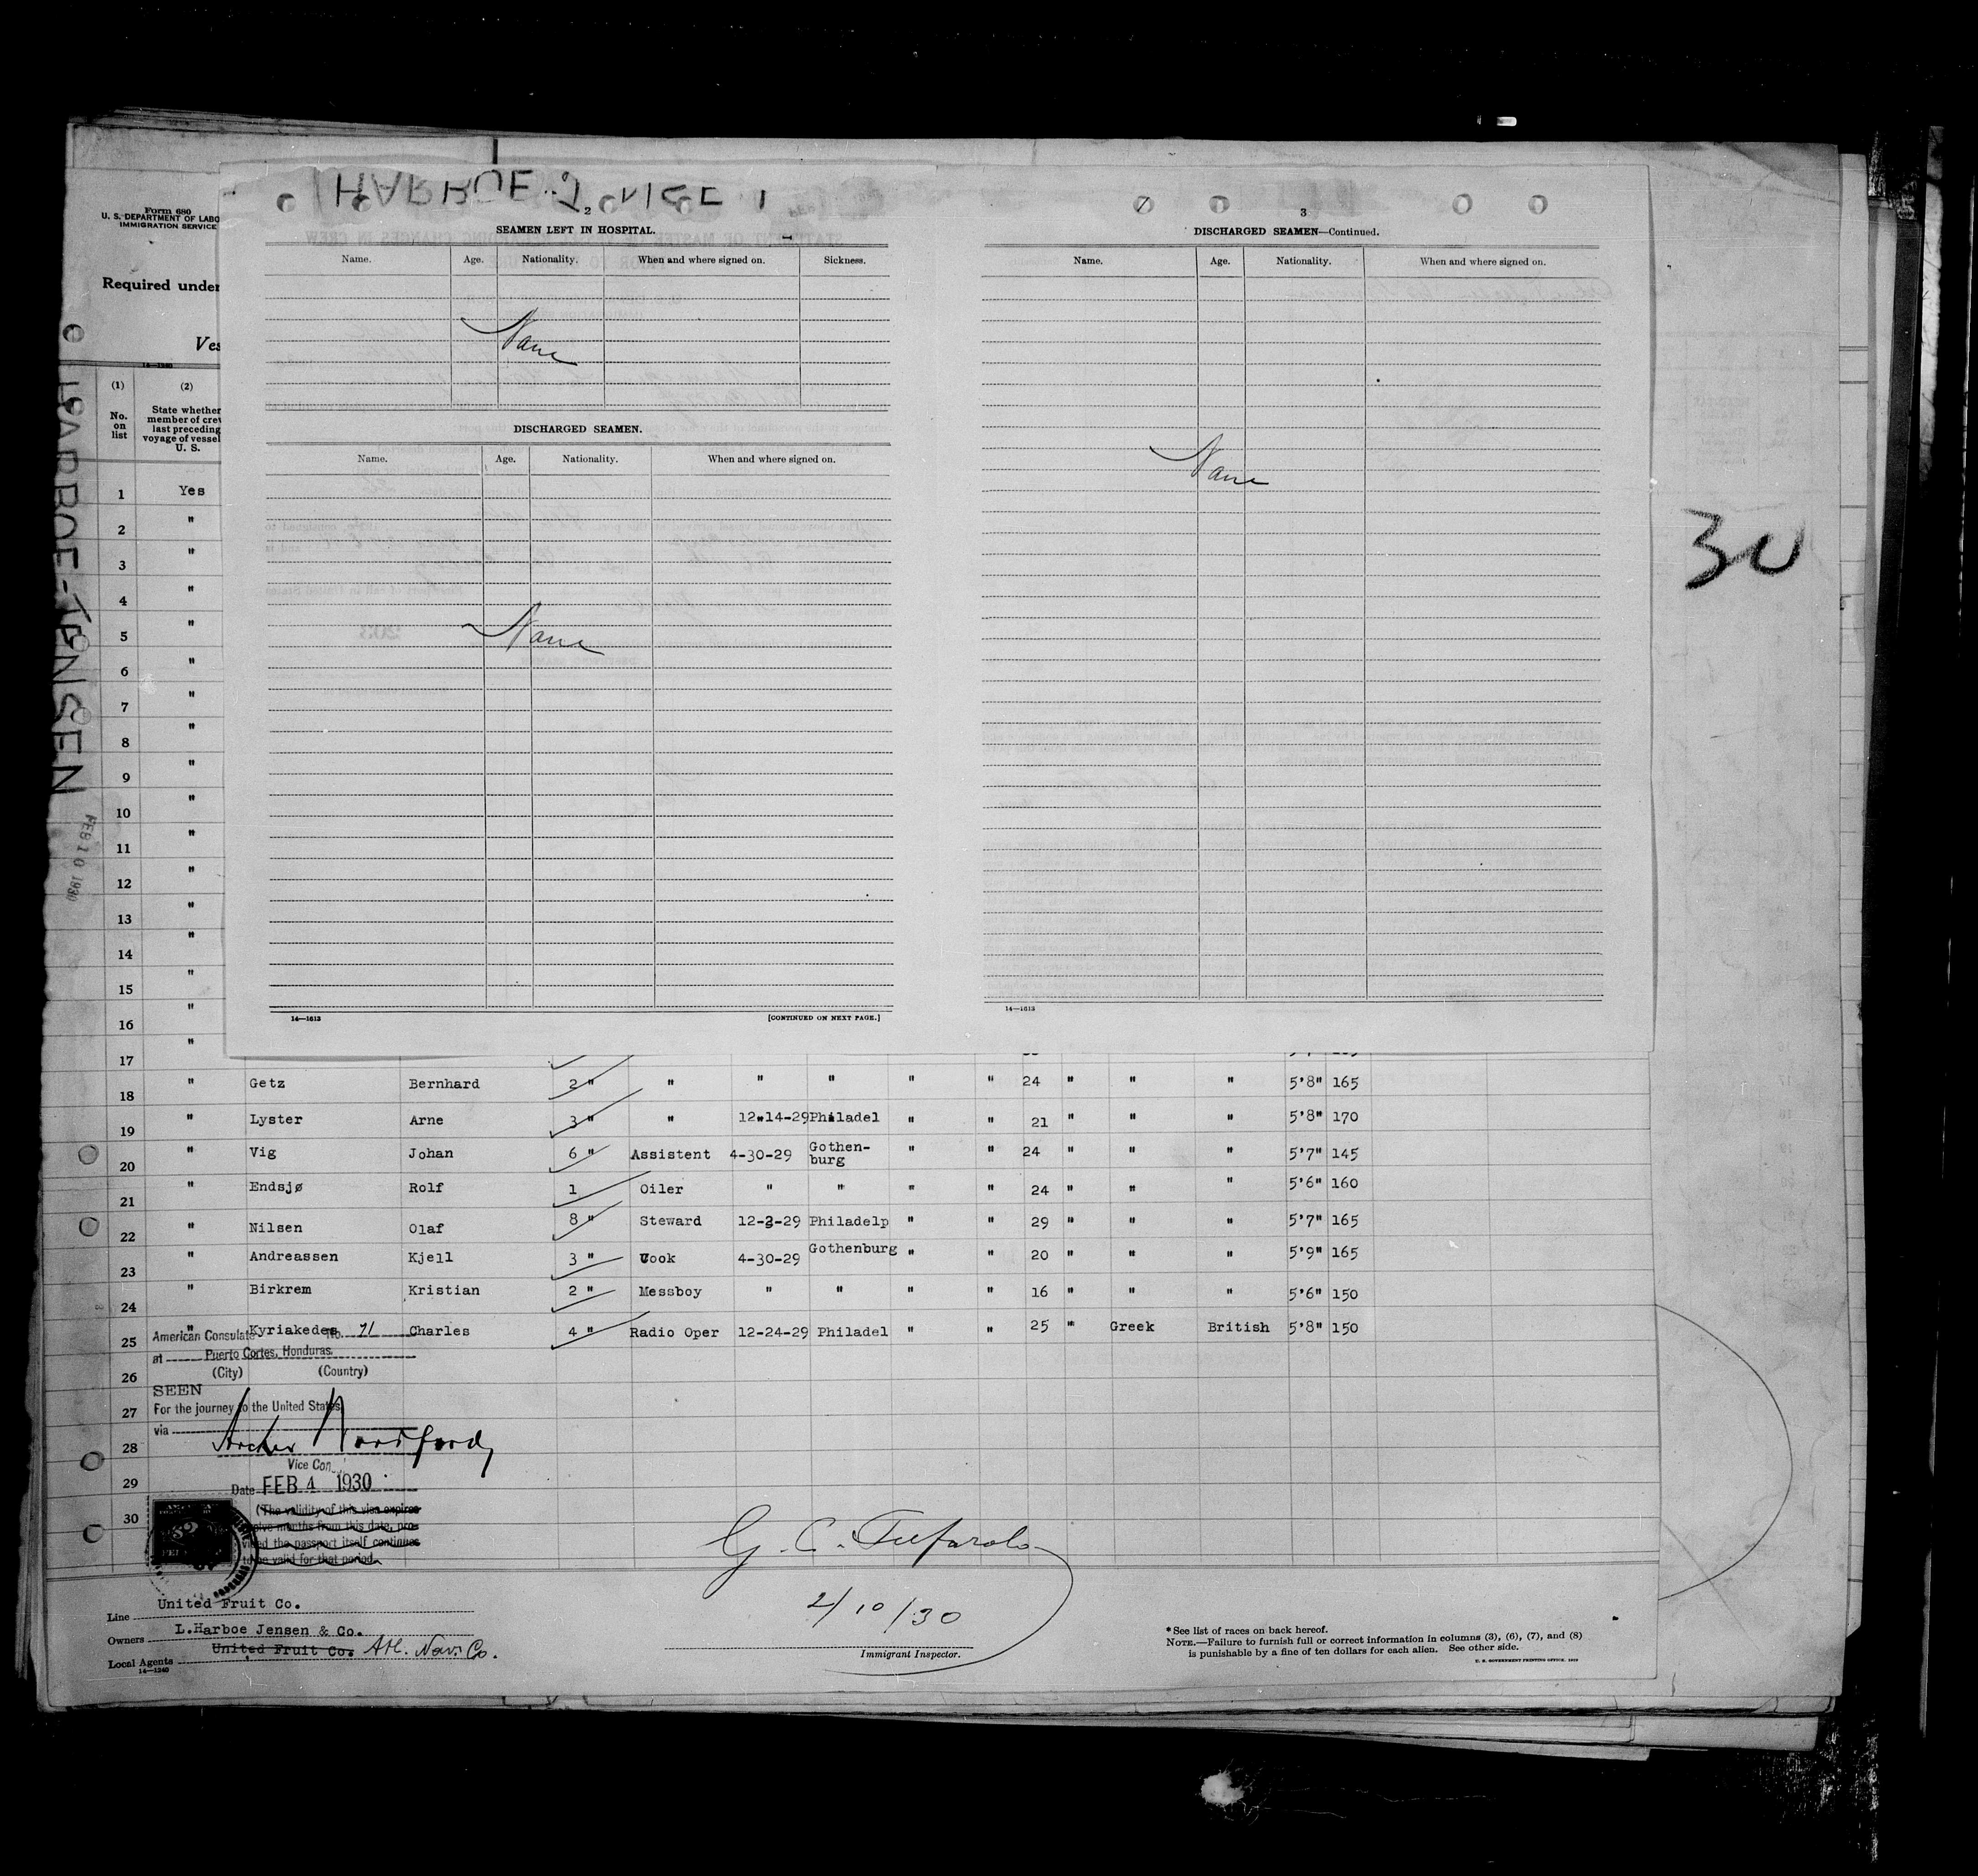 Form 680
U. S. DEPARTMENT OF LABO
IMMIGRATION SERVICE
Required under
Ves
14—1240
(1) (2)
No. on list
State whether member of crew last preceding voyage of vessel U. S.
HARBOE-JENSEN
FEB 10 1930
2
SEAMEN LEFT IN HOSPITAL.
Name. Age. Nationality. When and where signed on. Sickness.
None
DISCHARGED SEAMEN.
Name. Age. Nationality. When and where signed on.
None
14—1613 [CONTINUED ON NEXT PAGE.]
3
DISCHARGED SEAMEN—Continued.
Name. Age. Nationality. When and where signed on.
None
14—1613
30
1 Yes
2 "
3 "
4 "
5 "
6 "
7 "
8 "
9 "
10 "
11 "
12 "
13 "
14 "
15 "
16 "
17 "
18 " Getz Bernhard 2 " " " " " " 24 " " " 5'8" 165
19 " Lyster Arne 3 " " 12-14-29 Philadel " " 21 " " " 5'8" 170
20 " Vig Johan 6 " Assistent 4-30-29 Gothen-burg " " 24 " " " 5'7" 145
21 " Endsjø Rolf 1 Oiler " " " " 24 " " " 5'6" 160
22 " Nilsen Olaf 8 " Steward 12-3-29 Philadelp " " 29 " " " 5'7" 165
23 " Andreassen Kjell 3 " Cook 4-30-29 Gothenburg " " 20 " " " 5'9" 165
24 " Birkrem Kristian 2 " Messboy " " " " 16 " " " 5'6" 150
25 " Kyriakedes Charles 4 " Radio Oper 12-24-29 Philadel " " 25 " Greek British 5'8" 150
26
27
28
29
30
American Consulate No. 71
at Puerto Cortes, Honduras.
(City) (Country)
SEEN
For the journey to the United States
via
Archer Woodford,
Vice Con
Date FEB 4 1930
(The validity of this visa expires
twelve months from this date, pro-
vided the passport itself continues
to be valid for that period.
G. C.
2/10/30
Immigrant Inspector.
Line United Fruit Co.
Owners L.Harboe Jensen & Co.
Local Agents United Fruit Co. Atl. Nav. Co.
14—1240
*See list of races on back hereof.
NOTE.—Failure to furnish full or correct information in columns (3), (6), (7), and (8)
is punishable by a fine of ten dollars for each alien. See other side.
U. S. GOVERNMENT PRINTING OFFICE: 1929